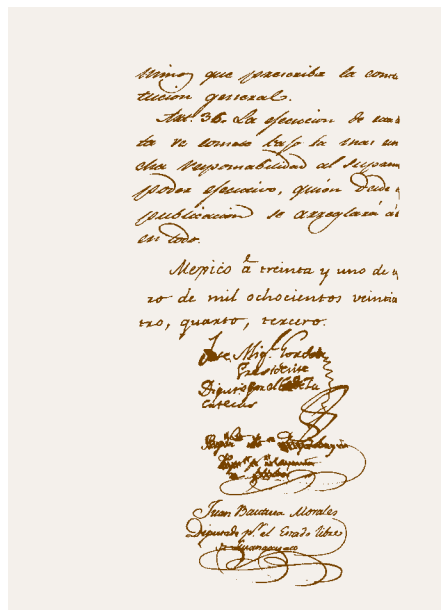 minos que prescribe la cons
titucion general.
Art. 36. La ejecucion de
ta se comete bajo la mas
cha responsabilidad al Suprem
poder ejecutivo, quien desde
publicacion se arreglará á
en todo.
Mexico á treinta y uno de
ro de mil ochocientos veintic
tro, quarto, tercero.
José Mig. Gordoa
Presidente
Diputado por el de Za
catecas
Juan Bautista Morales
Diputado pr. el Estado libre
de Guanajuato